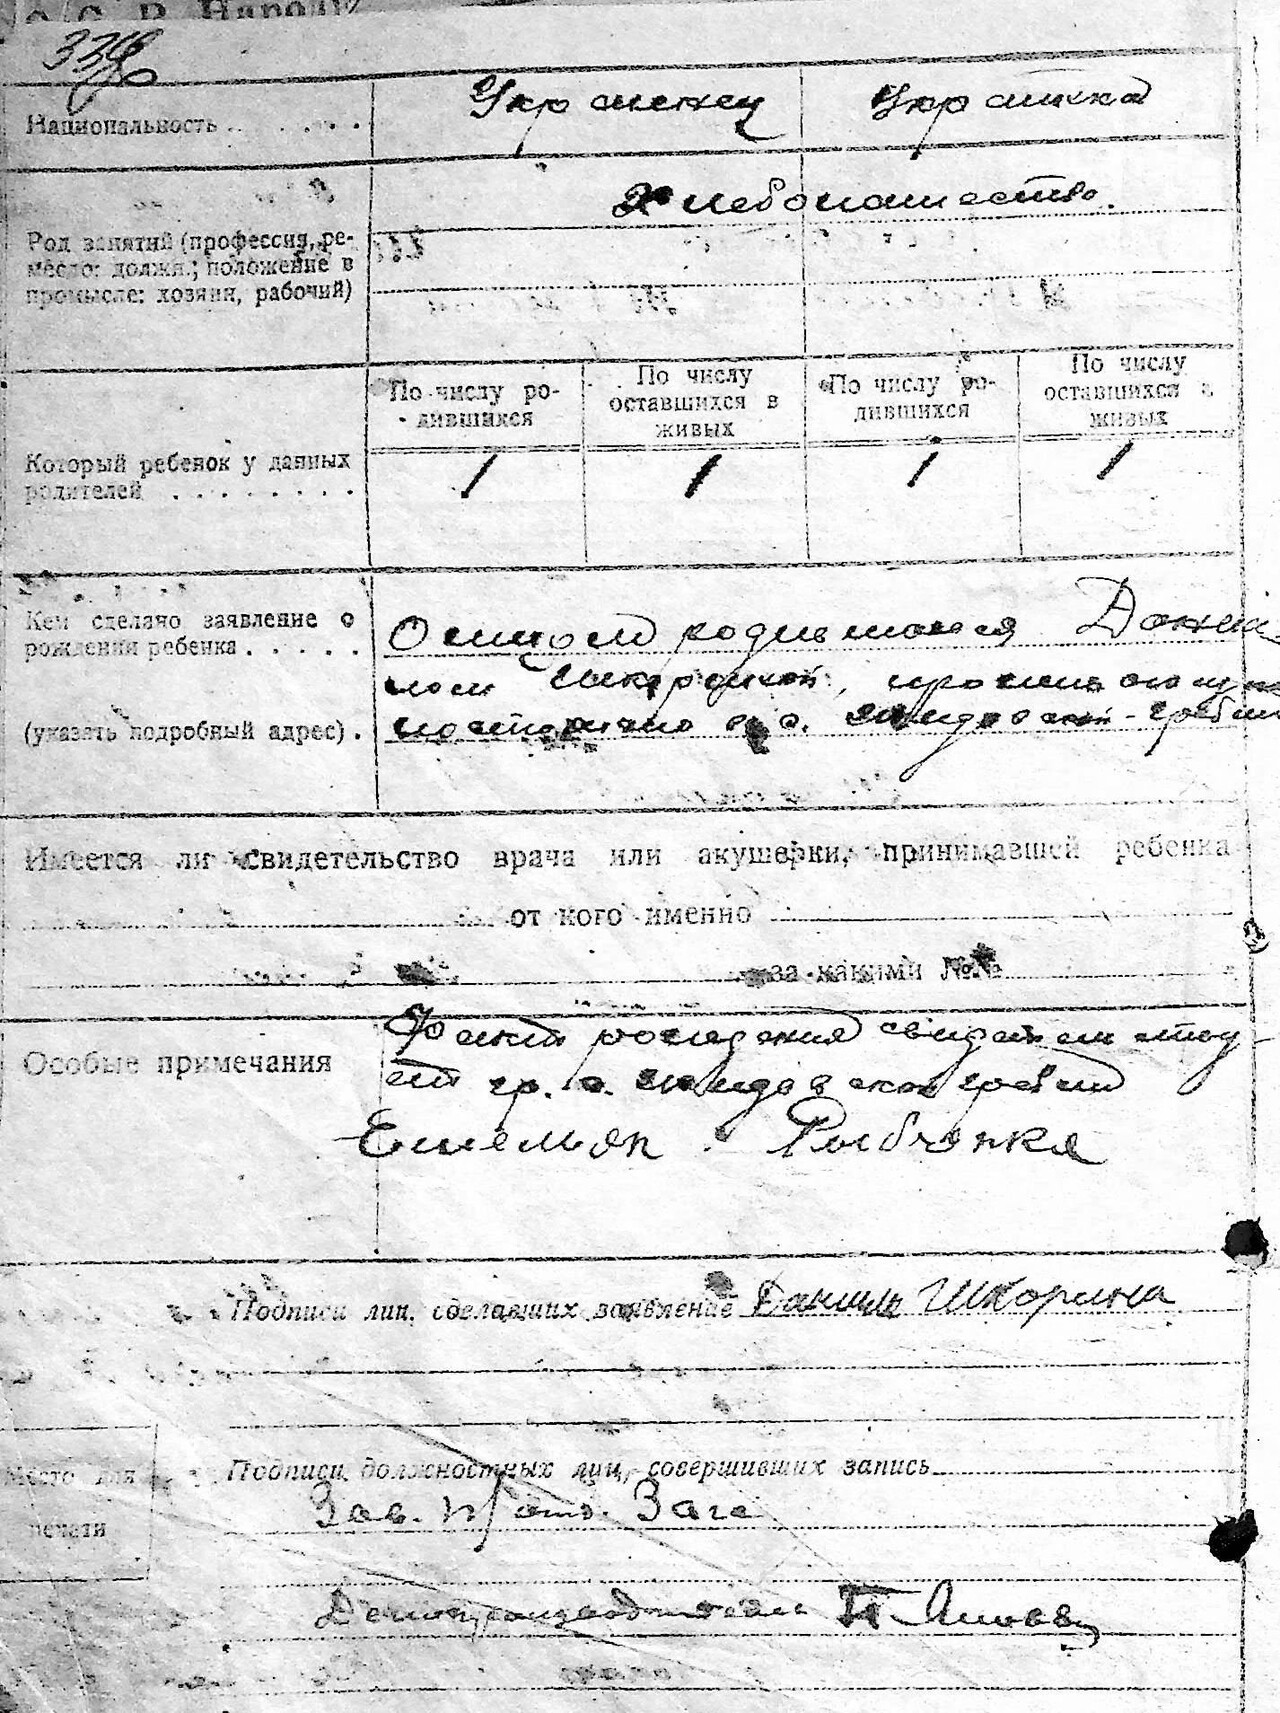 Национальность
Украинец
Украинка
Хлебопашество.
Род занятий (профессия, ре-
месло: должн.; положение в
промысле: хозяин, рабочий)
По числу ро-
дившихся
По числу
оставшихся в
живых
По числу ро-
дившихся
По числу
оставшихся в
живых
Который ребенок у данных
родителей
1 1 1 1
Кем сделано заявление о
рождении ребенка
(указать подробный адрес)
Отцом родившагося Дании-
лом
постоянно в с.
Имеется ли свидетельство врача или акушерки, принимавшей ребенка
от кого именно
за какими №№
Особые примечания
Факт рождения свидетельству-
ет гр. с.
Емельян Рыбченка
Подписи лиц, сделавших заявление Даниил Шкорина
Подписи должностных лиц, совершивших запись
Место для
печати
Зав. п/отд. Загс
Делопроизводитель